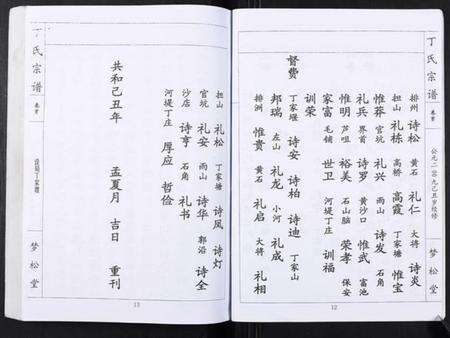 丁氏宗谱
卷首
公元二零零九己丑岁校修
梦松堂
排州 诗松 黄石 礼仁 大将 诗炎
担山 礼栋 高桥 高霞 丁家塘 惟宝
惟莽 官坑 礼兴 雨山 诗发 石角
礼兵 界首 诗罗 黄沙口 惟武 富池
惟明 芦咀 裕美 石山脑 荣孝 保安
家富 毛铺 世卫 河堤丁庄 训福
训荣
督费
丁家堰 诗安 诗柏 诗迪 丁家山
邦瑞 左山 礼龙 小河 礼成
排洲 惟贵 黄石 礼启 大将 礼相
12
担山 礼松 丁家塘 诗凤 诗灯
官坑 礼安 雨山 诗华 郭沿 诗全
沙店 诗亨 石角 礼书
河堤丁庄 厚应 哲俭
共和己丑年 孟夏月 吉日 重刊
13
丁氏宗谱
卷首
梦松堂